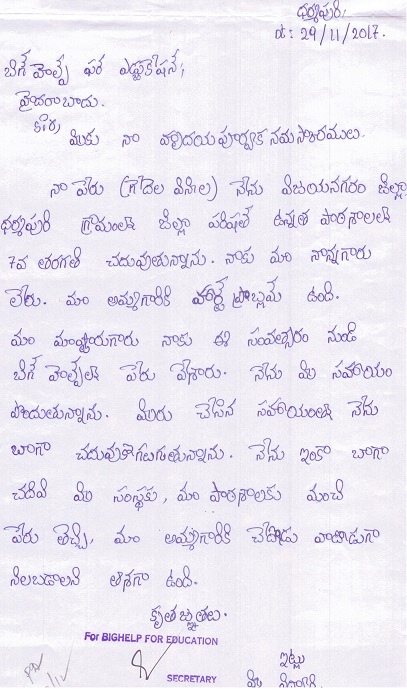 ధర్మపురి,
dt: 29/11/2017.
బిగ్ హెల్ప్ ఫర్ ఎడ్యుకేషన్,
హైదరాబాదు.
సార్,
మీకు నా హృదయ పూర్వక నమస్కారములు.
నా పేరు (గొదెల వినీల) నేను విజయనగరం జిల్లా
ధర్మపురి గ్రామంలో జిల్లా పరిషత్ ఉన్నత పాఠశాలలో
7వ తరగతి చదువుతున్నాను. నాకు మా నాన్నగారు
లేరు. మా అమ్మగారికి హార్ట్ ప్రాబ్లమ్ ఉంది.
మా మాష్టారుగారు నాకు ఈ సంవత్సరం నుండి
బిగ్ హెల్ప్‌లో పేరు వేశారు. నేను మీ సహాయం
పొందుతున్నాను. మీరు చేసిన సహాయంతో నేను
బాగా చదువుకోగలుగుతున్నాను. నేను ఇంకా బాగా
చదివి మీ సంస్థకు, మా పాఠశాలకు మంచి
పేరు తెచ్చి, మా అమ్మగారికి చేదోడు వాదోడుగా
నిలబడాలని ఆశగా ఉంది.
కృతజ్ఞతలు.
For BIGHELP FOR EDUCATION
SECRETARY
ఇట్లు
మీ